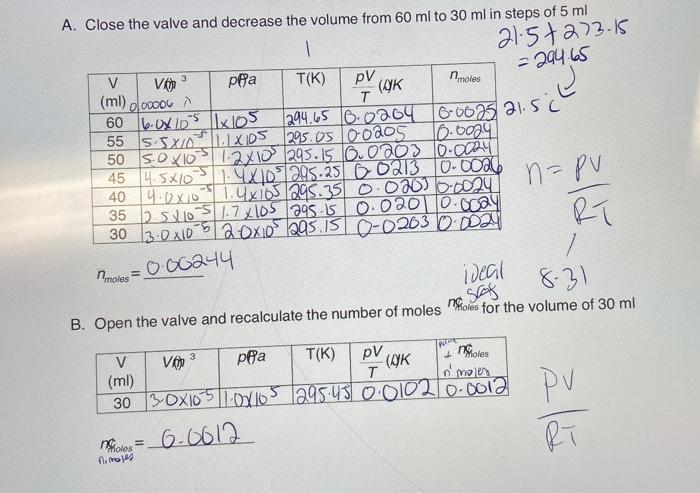 A. Close the valve and decrease the volume from 60 ml to 30 ml in steps of 5 ml
21.5+273.15
= 294.65
V (ml) V(m³) p(Pa) T(K) pV/T (J/K) nmoles
0.00006
60 6.0x10⁻⁵ 1x10⁵ 294.65 0.0204 0.0025 21.5
55 5.5x10⁻⁵ 1.1x10⁵ 295.05 0.0205 0.0024
50 5.0x10⁻⁵ 1.2x10⁵ 295.15 0.0203 0.0024
45 4.5x10⁻⁵ 1.4x10⁵ 295.25 0.0213 0.0026
40 4.0x10⁻⁵ 1.4x10⁵ 295.35 0.0203 0.0024
35 2.5x10⁻⁵ 1.7x10⁵ 295.15 0.0201 0.0024
30 3.0x10⁻⁵ 2.0x10⁵ 295.15 0.0203 0.0024
n = PV/RT
nmoles = 0.00244
ideal gas
8.31
B. Open the valve and recalculate the number of moles n'moles for the volume of 30 ml
V (ml) V(m³) p(Pa) T(K) pV/T (J/K) n'moles
n' moles
30 3.0x10⁻⁵ 1.0x10⁵ 295.45 0.0102 0.0012
PV/RT
n'moles = 0.0012
n. moles